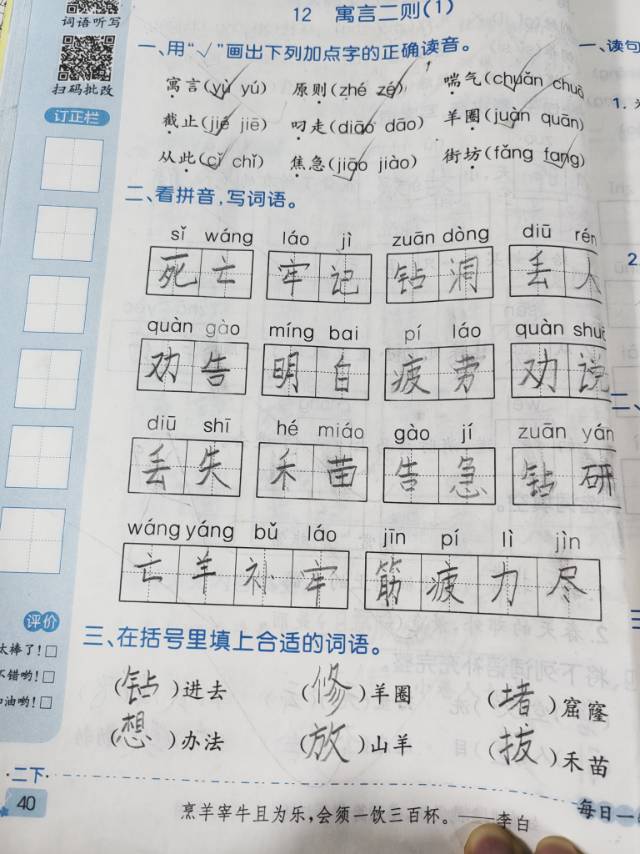 词语听写
扫码批改
订正栏
12 寓言二则(1)
一、用“√”画出下列加点字的正确读音。
寓言(yù yú) 原则(zhé zé) 喘气(chuǎn chuǎ
截止(jié jiē) 叼走(diāo dāo) 羊圈(juàn quān)
从此(cǐ chǐ) 焦急(jiāo jiào) 街坊(fǎng fang)
二、看拼音,写词语。
sǐ wáng láo jì zuān dòng diū rén
死亡 牢记 钻洞 丢人
quàn gào míng bai pí láo quàn shuō
劝告 明白 疲劳 劝说
diū shī hé miáo gào jí zuān yán
丢失 禾苗 告急 钻研
wáng yáng bǔ láo jīn pí lì jìn
亡羊补牢 筋疲力尽
三、在括号里填上合适的词语。
(钻)进去 (修)羊圈 (堵)窟窿
(想)办法 (放)山羊 (拔)禾苗
评价
太棒了!□
不错哟!□
加油哟!□
·二下·
40
烹羊宰牛且为乐,会须一饮三百杯。——李白
每日一
一、读句
1.
2.
二、